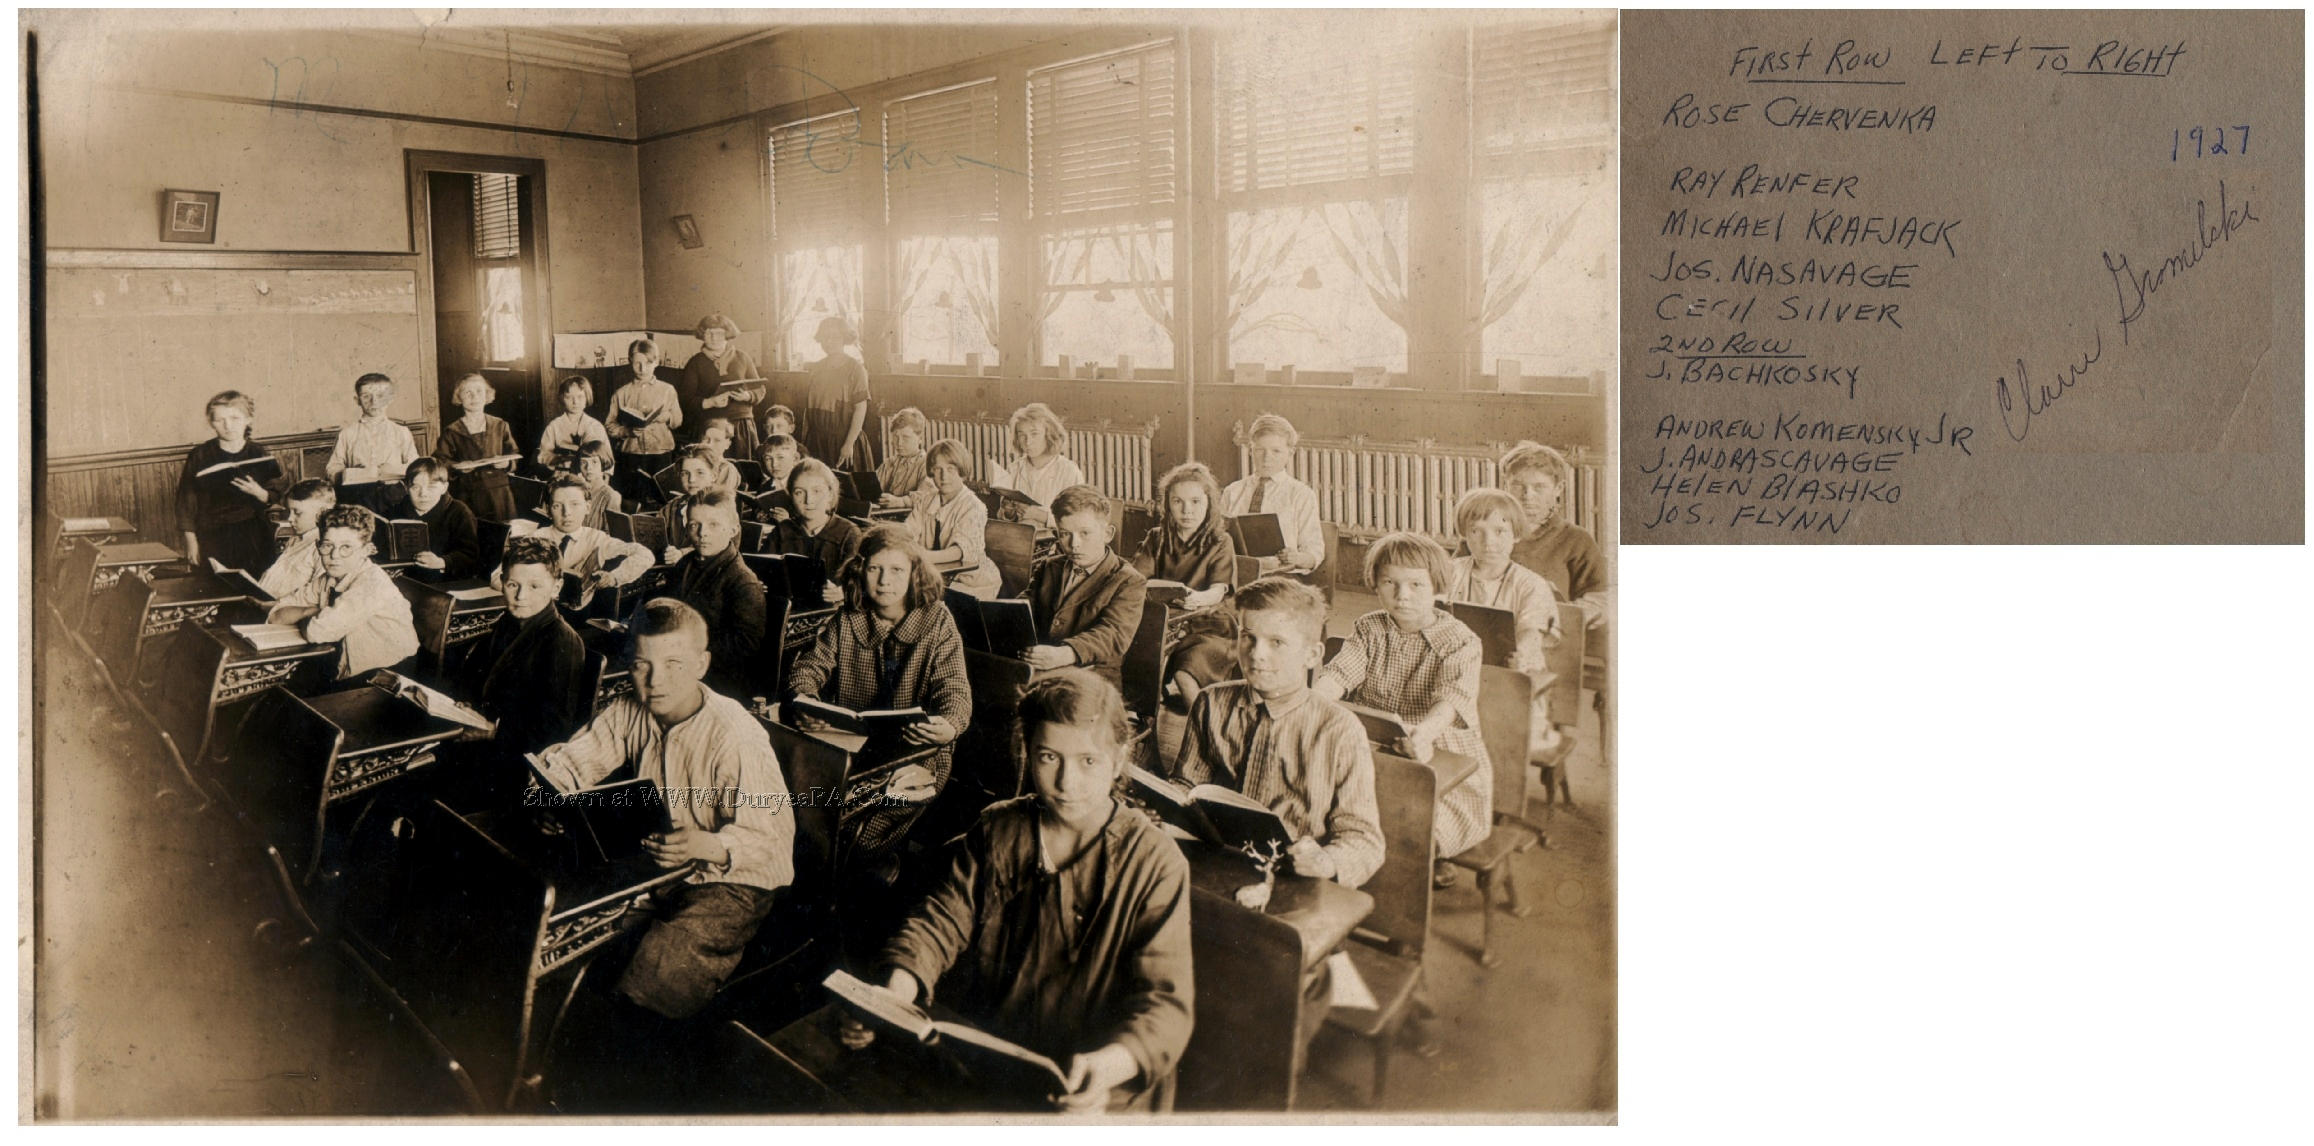 Shown at WWW.DuryeaPA.Com
FIRST ROW LEFT TO RIGHT
ROSE CHERVENKA
1927
RAY RENFER
MICHAEL KRAFJACK
JOS. NASAVAGE
CECIL SILVER
2ND ROW
J. BACHKOSKY
ANDREW KOMENSKY JR
J. ANDRASCAVAGE
HELEN BLASHKO
JOS. FLYNN